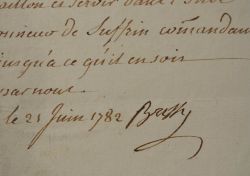 de servir dans l'Inde
Monsieur de Suffrin commandant
jusqu'a ce qu'il en soit
par nous.
le 21 Juin 1782 Bussy